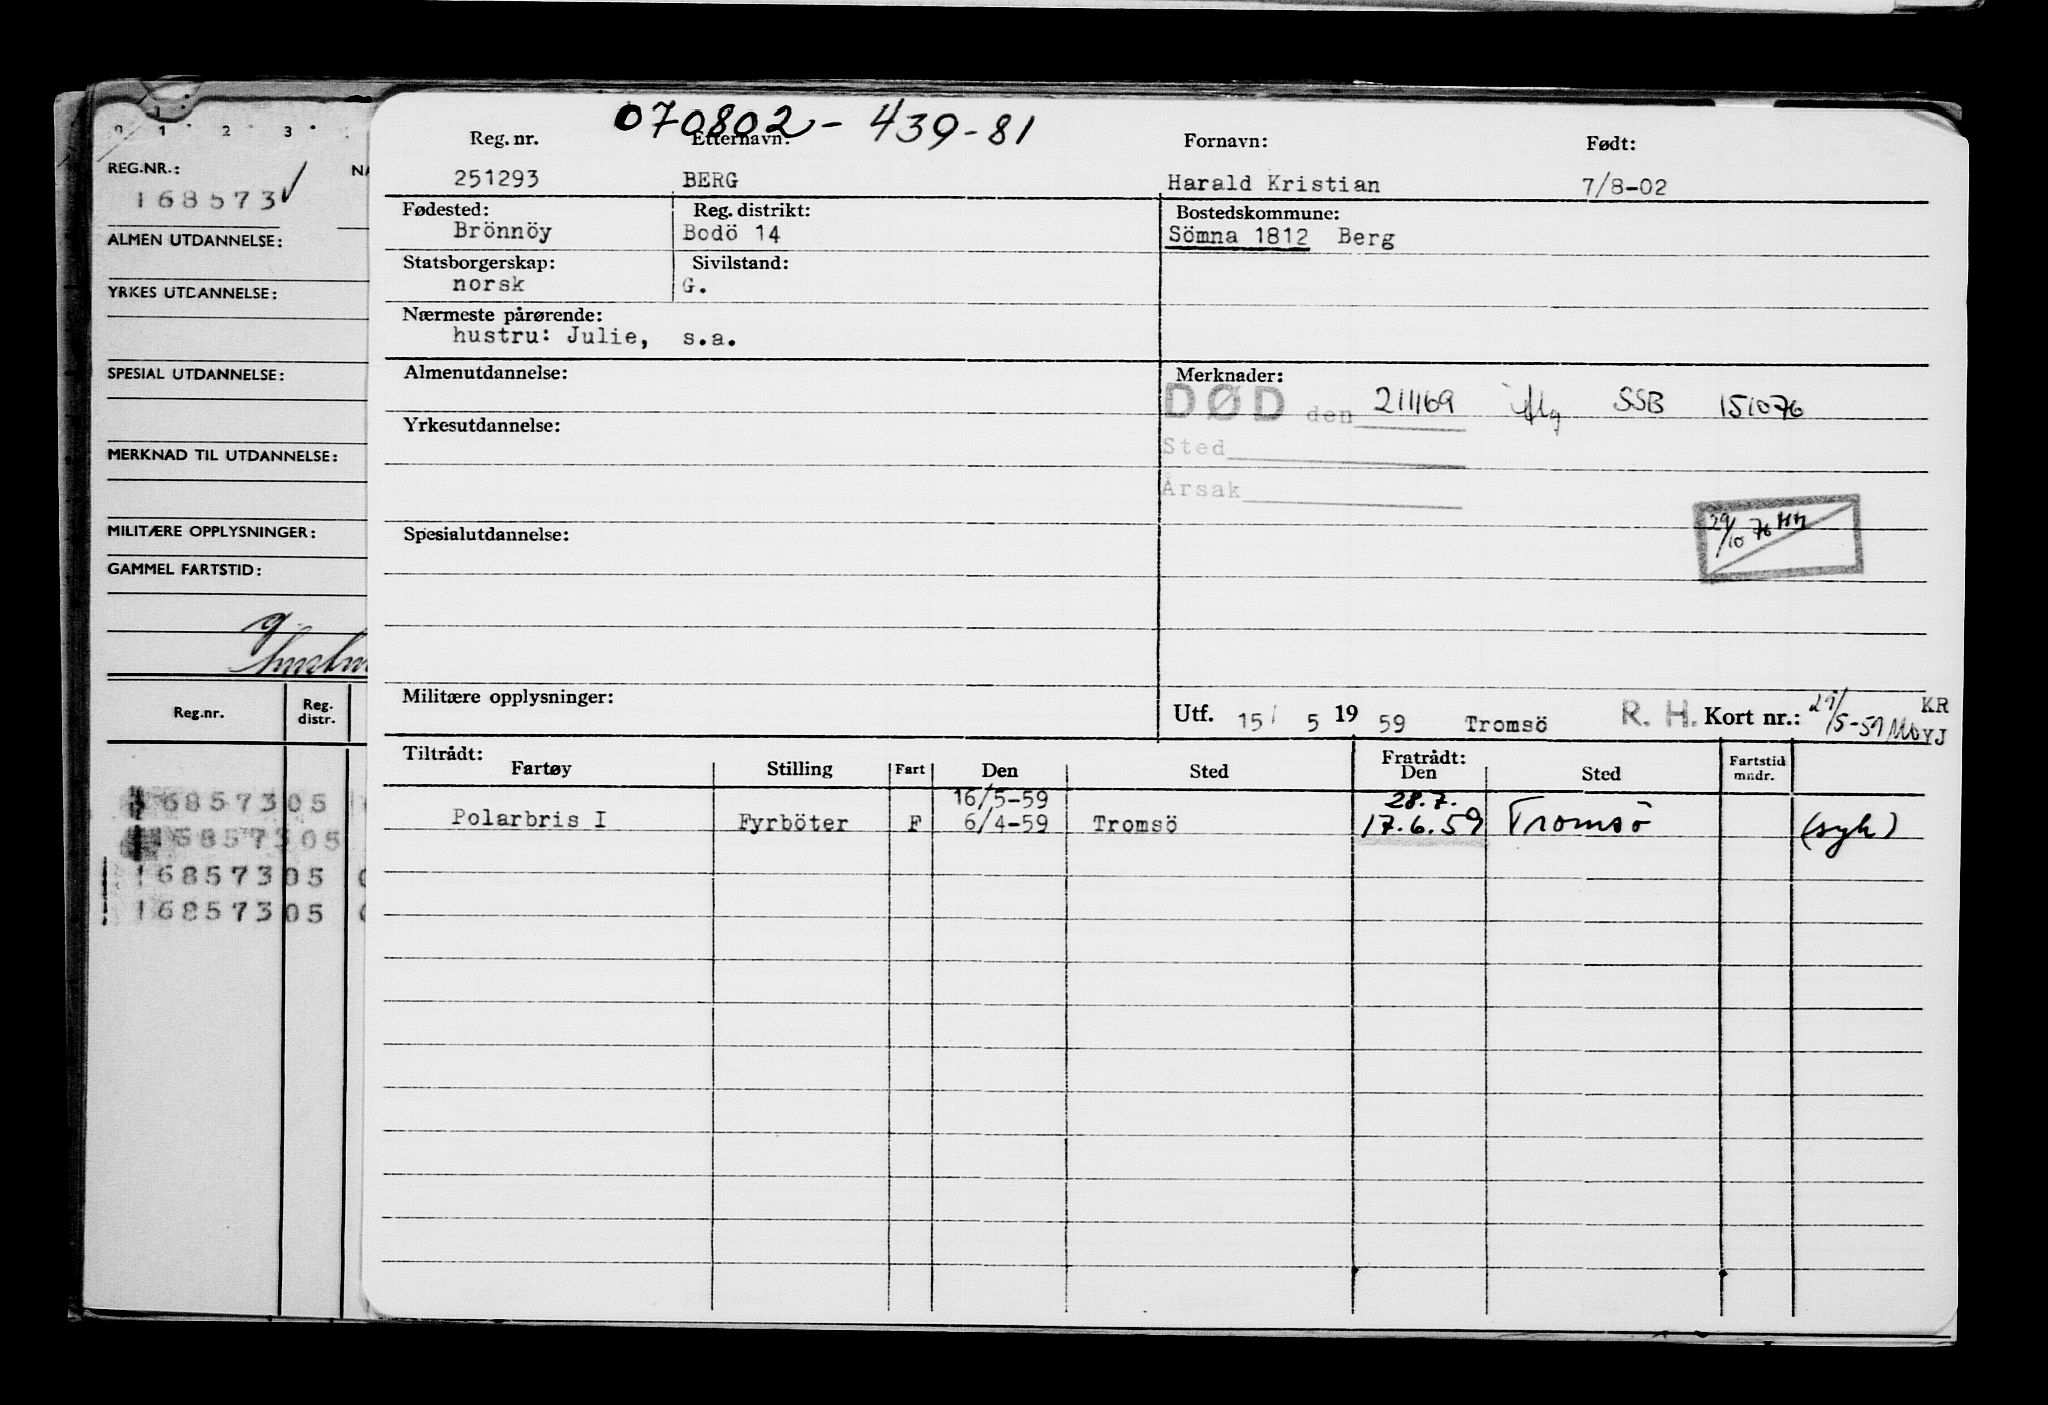 070802-439-81
0 1 2 3
REG.NR.:
168573
ALMEN UTDANNELSE:
YRKES UTDANNELSE:
SPESIAL UTDANNELSE:
MERKNAD TIL UTDANNELSE:
MILITÆRE OPPLYSNINGER:
GAMMEL FARTSTID:
Reg.nr. Reg. distr.
16857305
16857305
16857305
16857305
Reg. nr. Etternavn: Fornavn: Født:
251293 BERG Harald Kristian 7/8-02
Fødested: Reg. distrikt: Bostedskommune:
Brönnöy Bodö 14 Sömna 1812 Berg
Statsborgerskap: Sivilstand:
norsk G.
Nærmeste pårørende:
hustru: Julie, s.a.
Almenutdannelse: Merknader:
DØD den 211169 SSB 151076
Yrkesutdannelse:
Sted
Årsak
29/10 76
Spesialutdannelse:
Militære opplysninger:
Utf. 15/ 5 19 59 Tromsö R. H. Kort nr.: 29/5-59 KR
YJ
Tiltrådt: Fratrådt:
Fartøy Stilling Fart Den Sted Den Sted Fartstid mndr.
16/5-59 28.7.
Polarbris I Fyrböter F 6/4-59 Tromsö 17.6.59 Tromsö (syk)